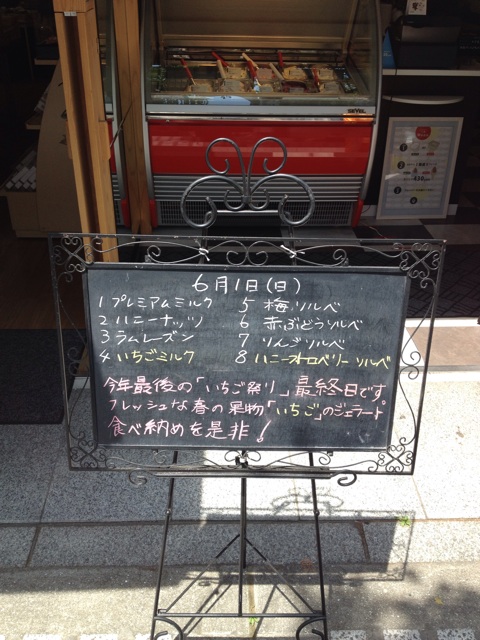 SEVEL
6月1日(日)
1 プレミアムミルク 5 梅ソルベ
2 ハニーナッツ 6 赤ぶどうソルベ
3 ラムレーズン 7 りんごソルベ
4 いちごミルク 8 ハニーストロベリーソルベ
今年最後の「いちご祭り」最終日です
フレッシュな春の果物「いちご」のジェラート
食べ納めを是非!